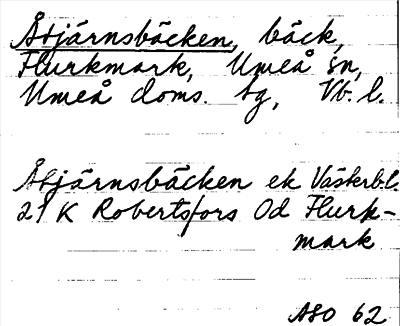 Åtjärnsbäcken, bäck,
Flurkmark, Umeå sn,
Umeå doms. tg, Vb. l.
Åtjärnsbäcken ek Västerb.l.
21 K Robertsfors Od Flurk-
mark
ASO 62